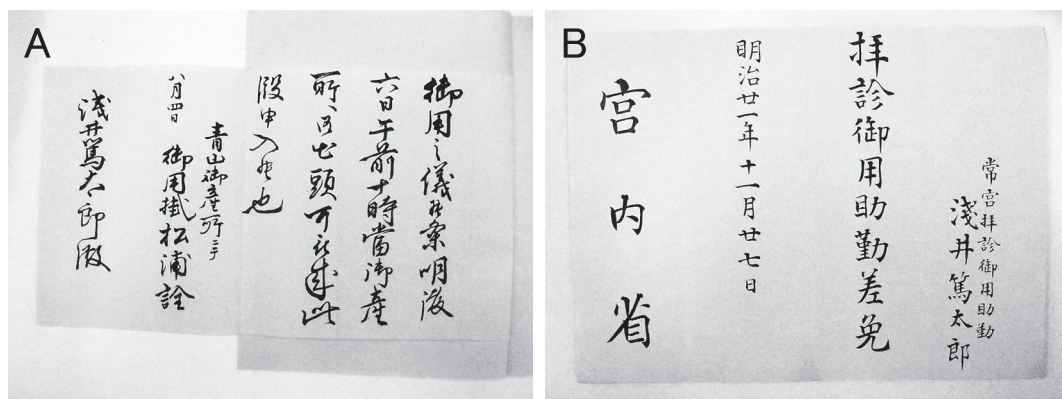 A
御用之儀候条明後
六日午前十時當御産
所へ御出頭可被成此
段申入候也
青山御産所ニテ
八月四日 御用掛松浦詮
淺井篤太郎殿
B
常宮拝診御用助勤
淺井篤太郎
拝診御用助勤差免
明治廿一年十一月廿七日
宮内省